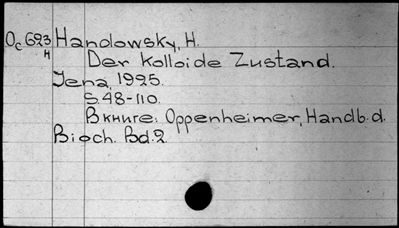 Oc 693 Handowsky, H.
H
Der kolloide Zustand.
Jena, 1925.
S. 48-110.
В книге: Oppenheimer, Handb. d.
Bioch. Bd. 2.